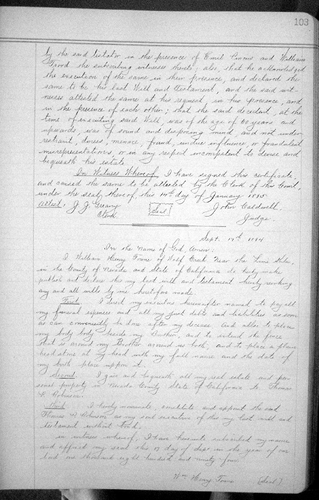 103
by the said testator in the presence of Emil Evans and William
the subscribing witnesses thereto, also, that he acknowledged
the execution of the same in their presence, and declared the
same to be his last Will and Testament, and the said wit-
nesses attested the same at his request, in his presence, and
in the presence of each other; that the said decedent, at the
time of executing said Will, was of the age of years and
upwards, was of sound and disposing mind and not under
restraint, duress, menace, fraud, undue influence, or fraudulent
misrepresentation, or in any respect incompetent to devise and
bequeath his estate.
In Witness Whereof, I have signed this certificate,
and caused the same to be attested by the Clerk of this Court,
under the seal thereof this 14th day of January 1895
Attest: J. J. Greany
Clerk
Seal
John Caldwell
Judge
Sept. 14th 1894
In the Name of God, Amen.
I William Henry of near the Lime Kiln
in the County of Nevada and State of California do hereby make
publish and declare this my last will and testament hereby revoking
any and all wills by me heretofore made.
First I direct my executor hereinafter named to pay all
my funeral expenses and all my just debts and liabilities as soon
as can conveniently be done after my decease. And also to place
my body beside my brother and to extend the fence
that is around my Brother around us both and to place a plain
head stone at my head with my full name and the date of
my death upon it.
Second I give and bequeath all my real estate and per-
sonal property in Nevada County State of California to Thomas
Third I hereby nominate, constitute and appoint the said
Thomas as my sole executor of this my last will and
testament without bonds.
In witness whereof, I have hereunto subscribed my name
and affixed my seal this day of Sept. in the year of our
Lord one thousand eight hundred and ninety four.
Wm Henry (Seal)